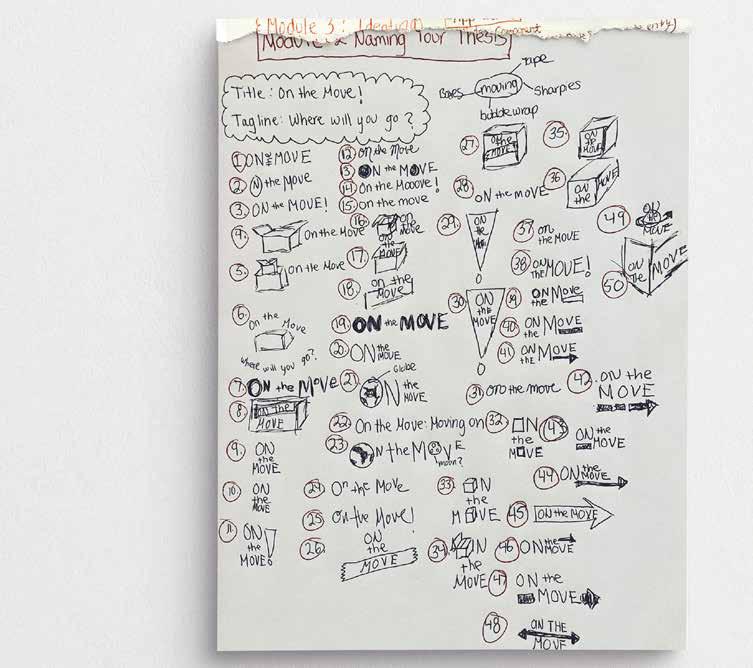 Module 3: Identifying
Module 2 Naming Your Thesis
Title: On the Move!
Tagline: Where will you go?
moving
tape
Boxes
Sharpies
bubble wrap
1. ON the MOVE
2. ON the Move
3. ON the MOVE!
4. On the Move
5. On the Move
6. On the Move
Where will you go?
7. ON the MoVE
8. ON the MOVE
9. ON the MOVE
10. ON the MOVE
11. ON the MOVE!
12. On the Move
13. ON the MOVE
14. On the Mooove!
15. On the move
16. on the move
17. on the MOVE
18. on the MOVE
19. ON the MOVE
20. ON the MOVE
21. ON the MOVE
Globe
22. On the Move: Moving on
23. ON the MOVE
moon?
24. On the Move
25. On the Move!
26. ON the MOVE
27. ON the MOVE
28. ON the MOVE
29. ON the
30. ON the MOVE
31. on the move
32. ON the MOVE
33. ON the MOVE
34. ON the MOVE
35. ON the MOVE
36. ON the MOVE
37. on the MOVE
38. ON the MOVE!
39. ON the Move
40. ON the MOVE
41. ON the MOVE
42. ON the MOVE
43. ON the MOVE
44. ON the MOVE
45. ON the MOVE
46. ON the MOVE
47. ON the MOVE
48. ON THE MOVE
49. ON the MOVE
50. ON the MOVE